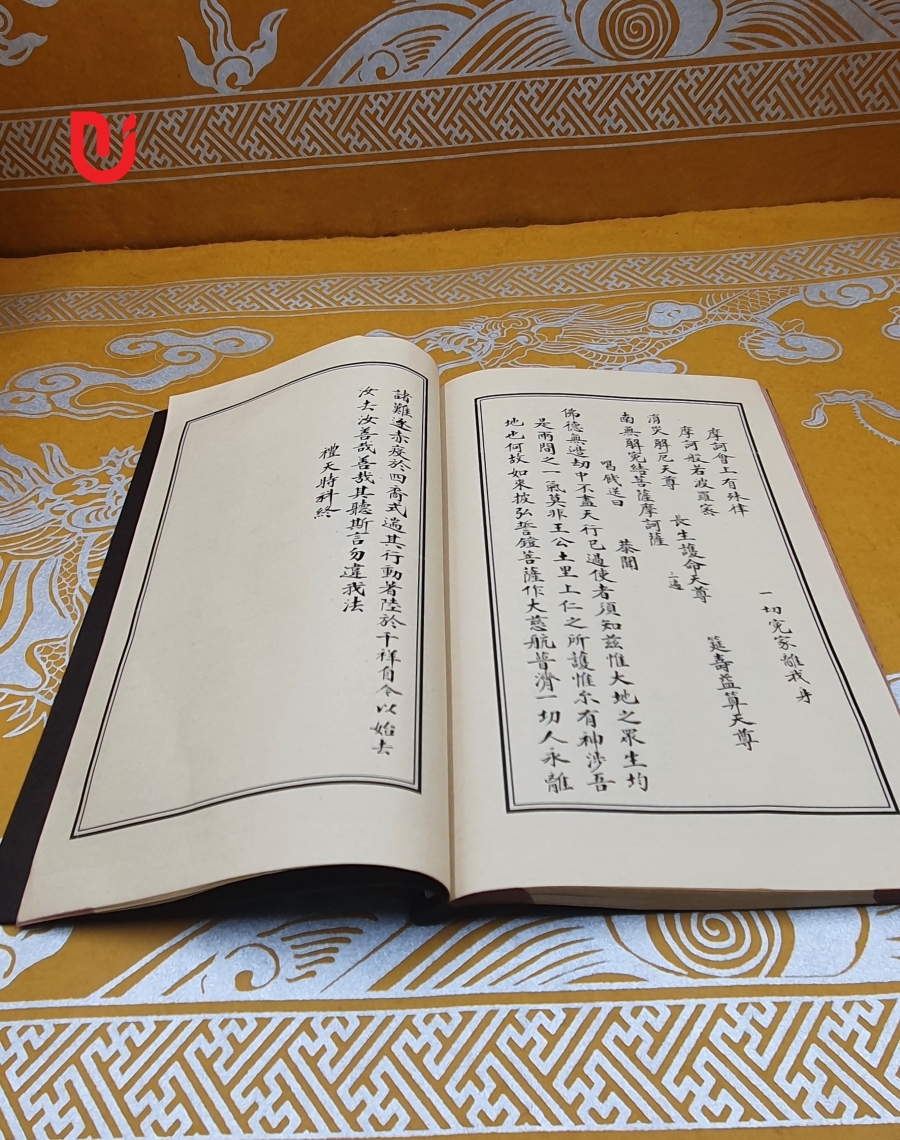 摩訶會上有殊律 一切冤家離我身
摩訶般若波羅蜜 筵壽益算天尊
消災解厄天尊 長生護命天尊
南無解冤結菩薩摩訶薩 三遍
喝餞送曰 恭聞
佛德無邊劫中不盡天行已過使者須知茲惟大地之眾生均
是兩間之一氣莫非王公土里上仁之所護惟尔有神涉吾
地也何故如來披弘誓鎧菩薩作大慈航普濟一切人永離
諸難逐赤疫於四裔式遄其行動著陸於千祥自今以始去
汝去汝善哉善哉其聽斯言勿違我法
禮天時科終